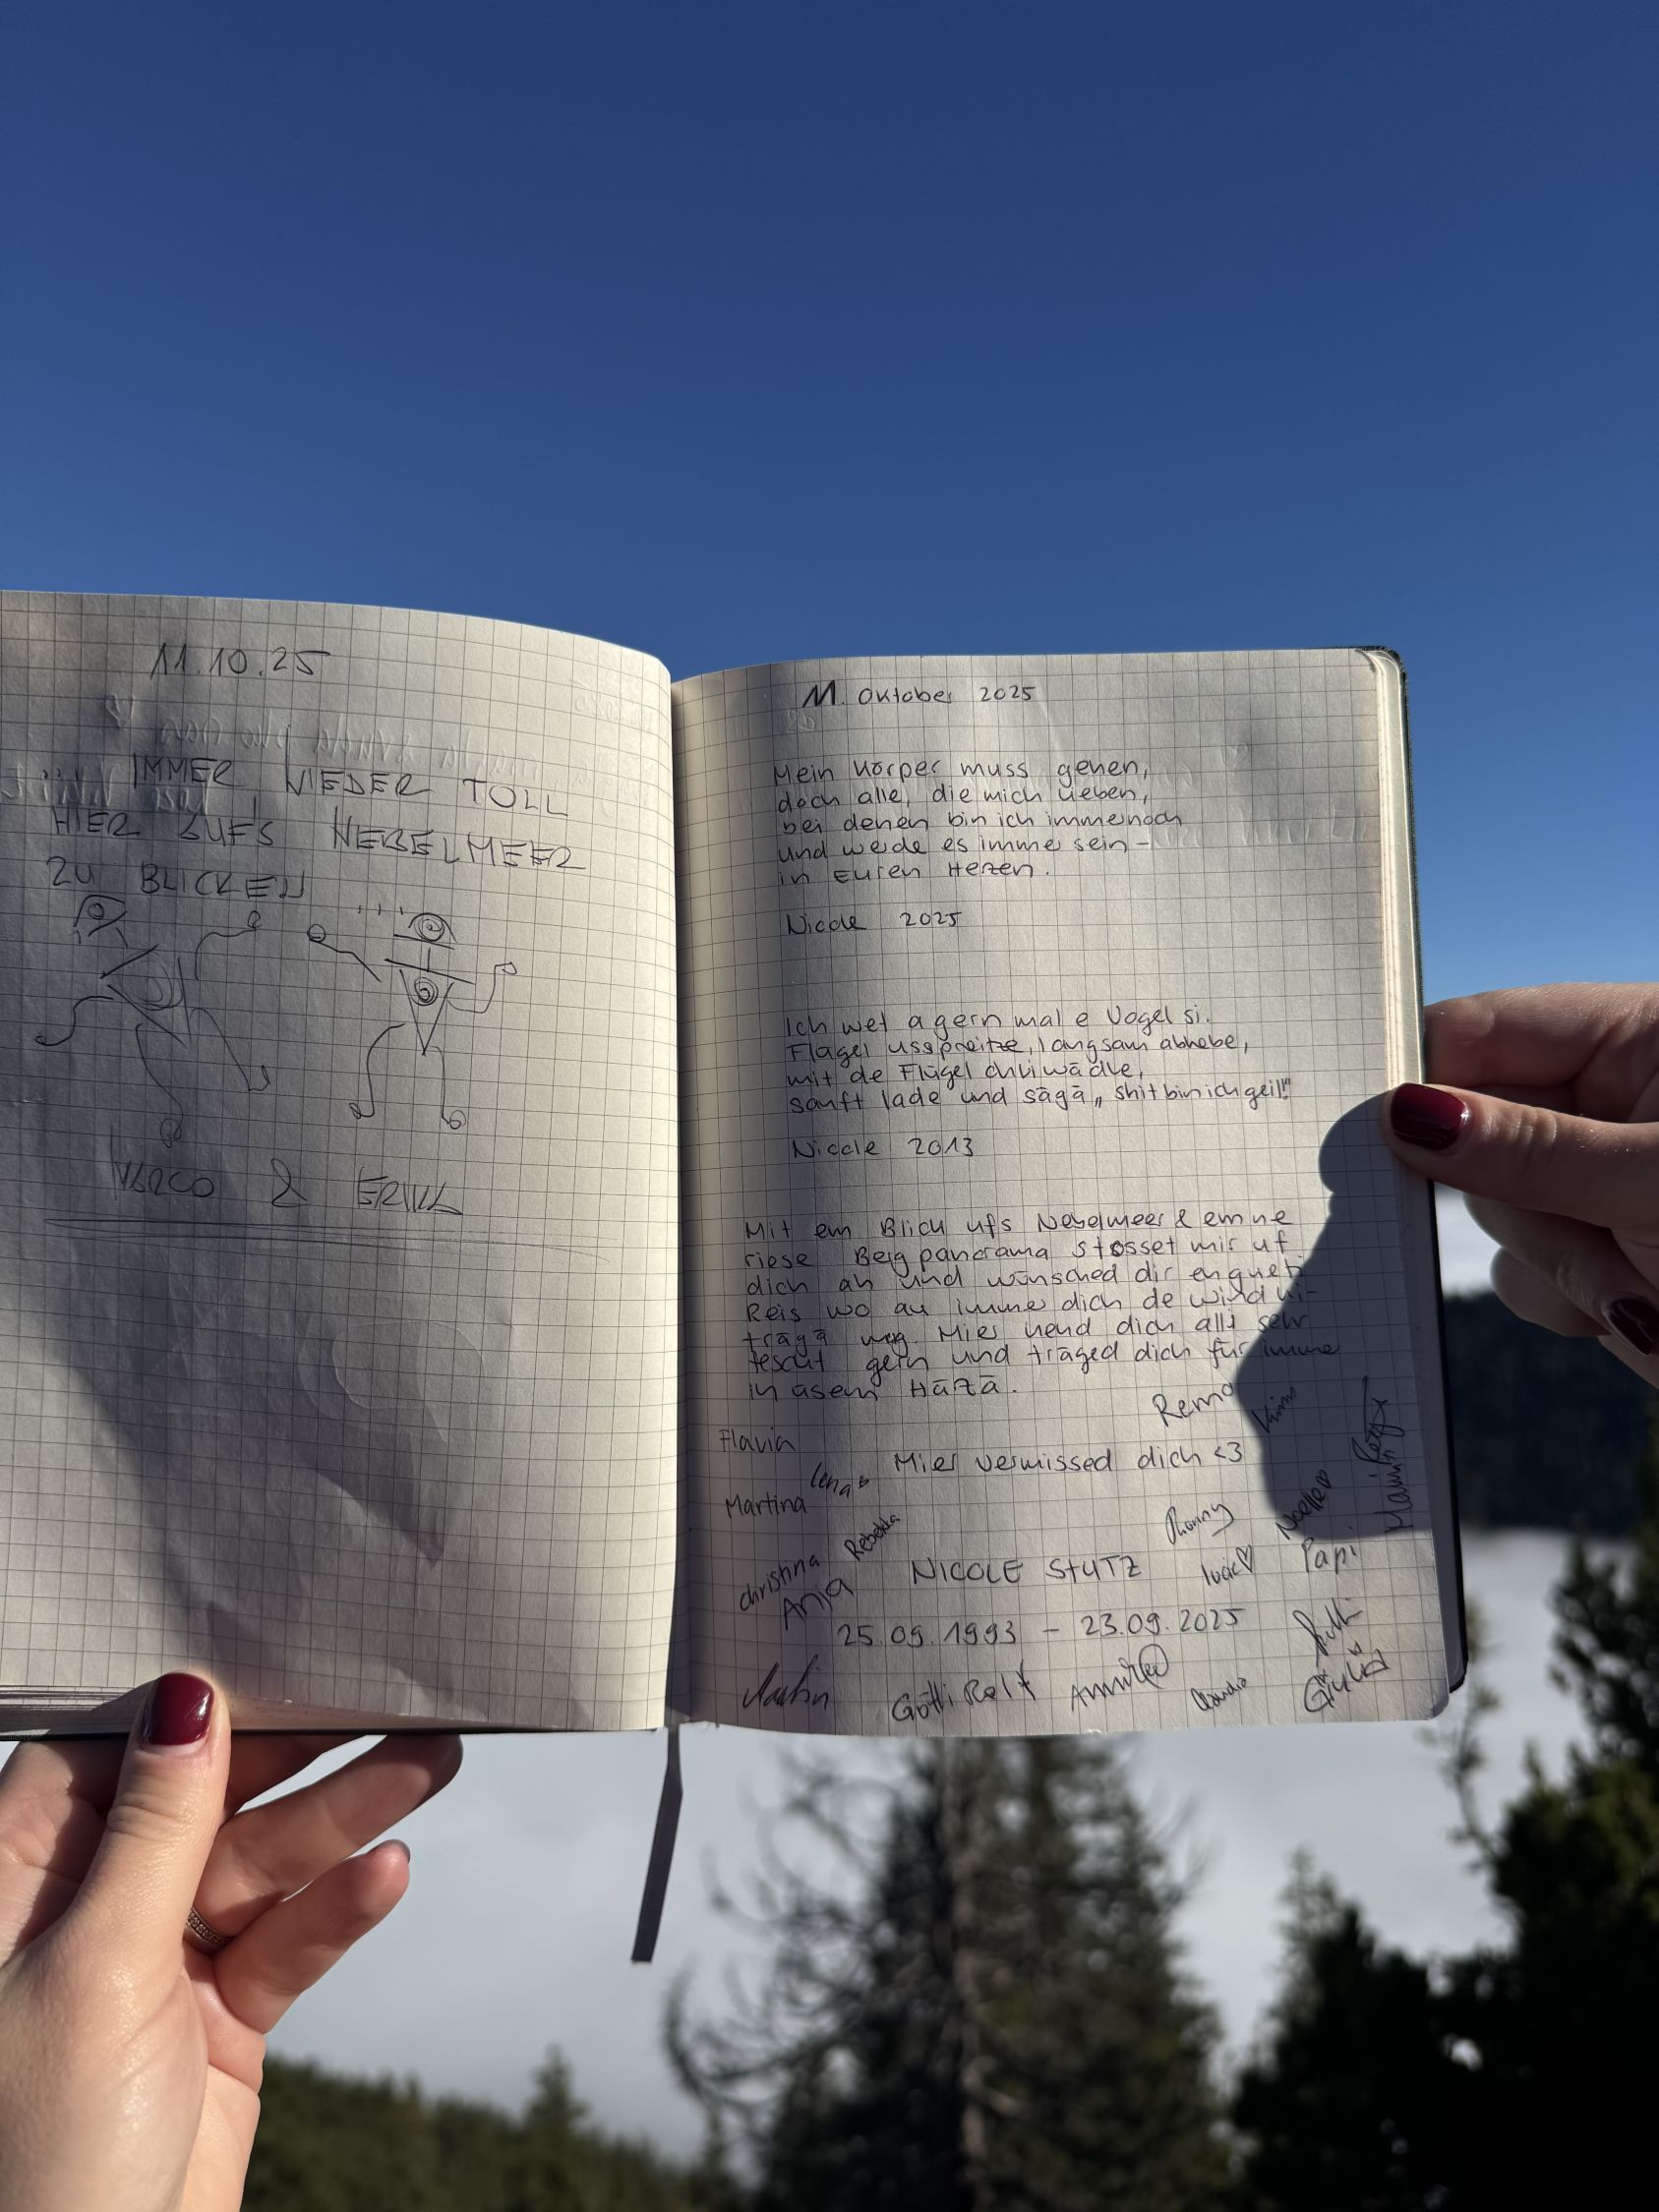 11.10.25
IMMER WIEDER TOLL
HIER AUF'S NEBELMEER
ZU BLICKEN
MARCO & ERIKA
11. Oktober 2025
Mein Körper muss gehen,
doch alle, die mich lieben,
bei denen bin ich immernoch
und werde es immer sein –
in Euren Herzen.
Nicole 2025
Ich wet a gern mal e Vogel si.
Flügel usspreitze, langsam abhebe,
mit de Flügel chli wädle,
sanft lade und sägä „shit bin ich geil!"
Nicole 2013
Mit em Blick ufs Nebelmeer & emne
riese Bergpanorama stosset mir uf
dich ah und wünsched dir en gueti
Reis wo au immer dich de Wind hi-
trägä mag. Mier hend dich alli sehr
fescht gern und träged dich für immer
in üsem Häzä.
Remo
Flavia
Mier vermissed dich <3
Lena
Martina
Rebekka
Ronny
Noelle
Mami
Christina
Anja
NICOLE STUTZ
Papi
25.09.1993 – 23.09.2025
Martin
Götti Ralf
Claudio
Giulia